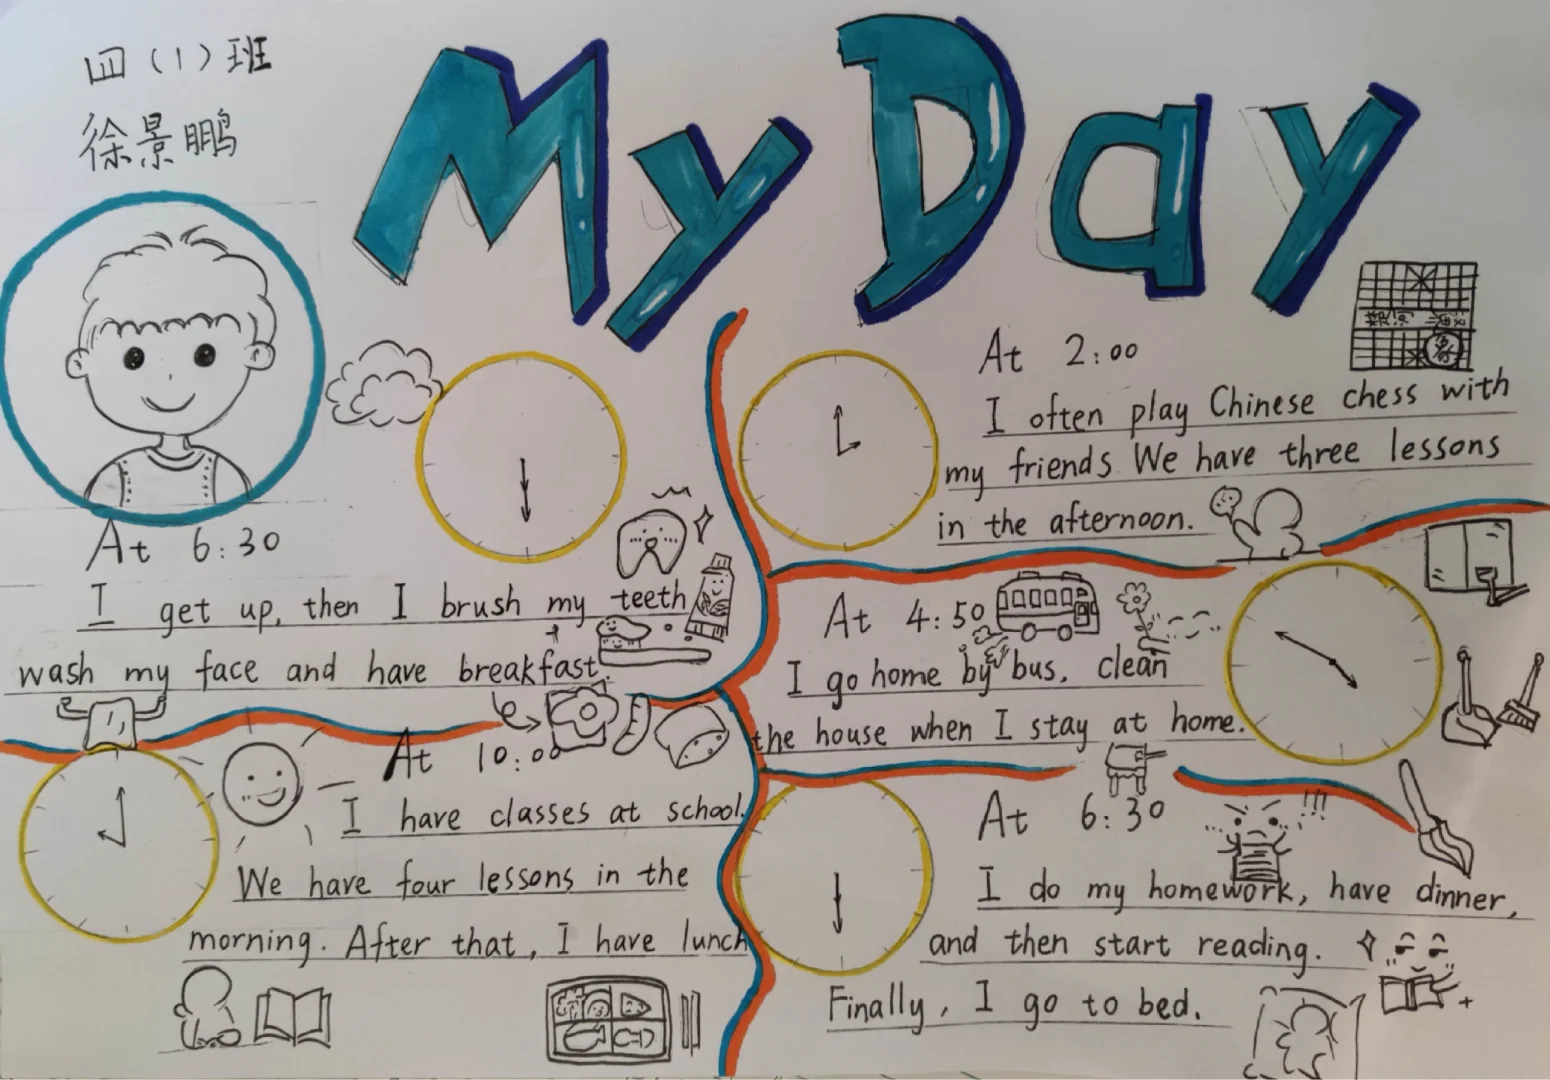 四（1）班
徐景鹏
My Day
At 6:30
I get up, then I brush my teeth
wash my face and have breakfast.
At 10:00
I have classes at school.
We have four lessons in the
morning. After that, I have lunch
At 2:00
I often play Chinese chess with
my friends. We have three lessons
in the afternoon.
At 4:50
I go home by bus, clean
the house when I stay at home.
At 6:30
I do my homework, have dinner,
and then start reading.
Finally, I go to bed.